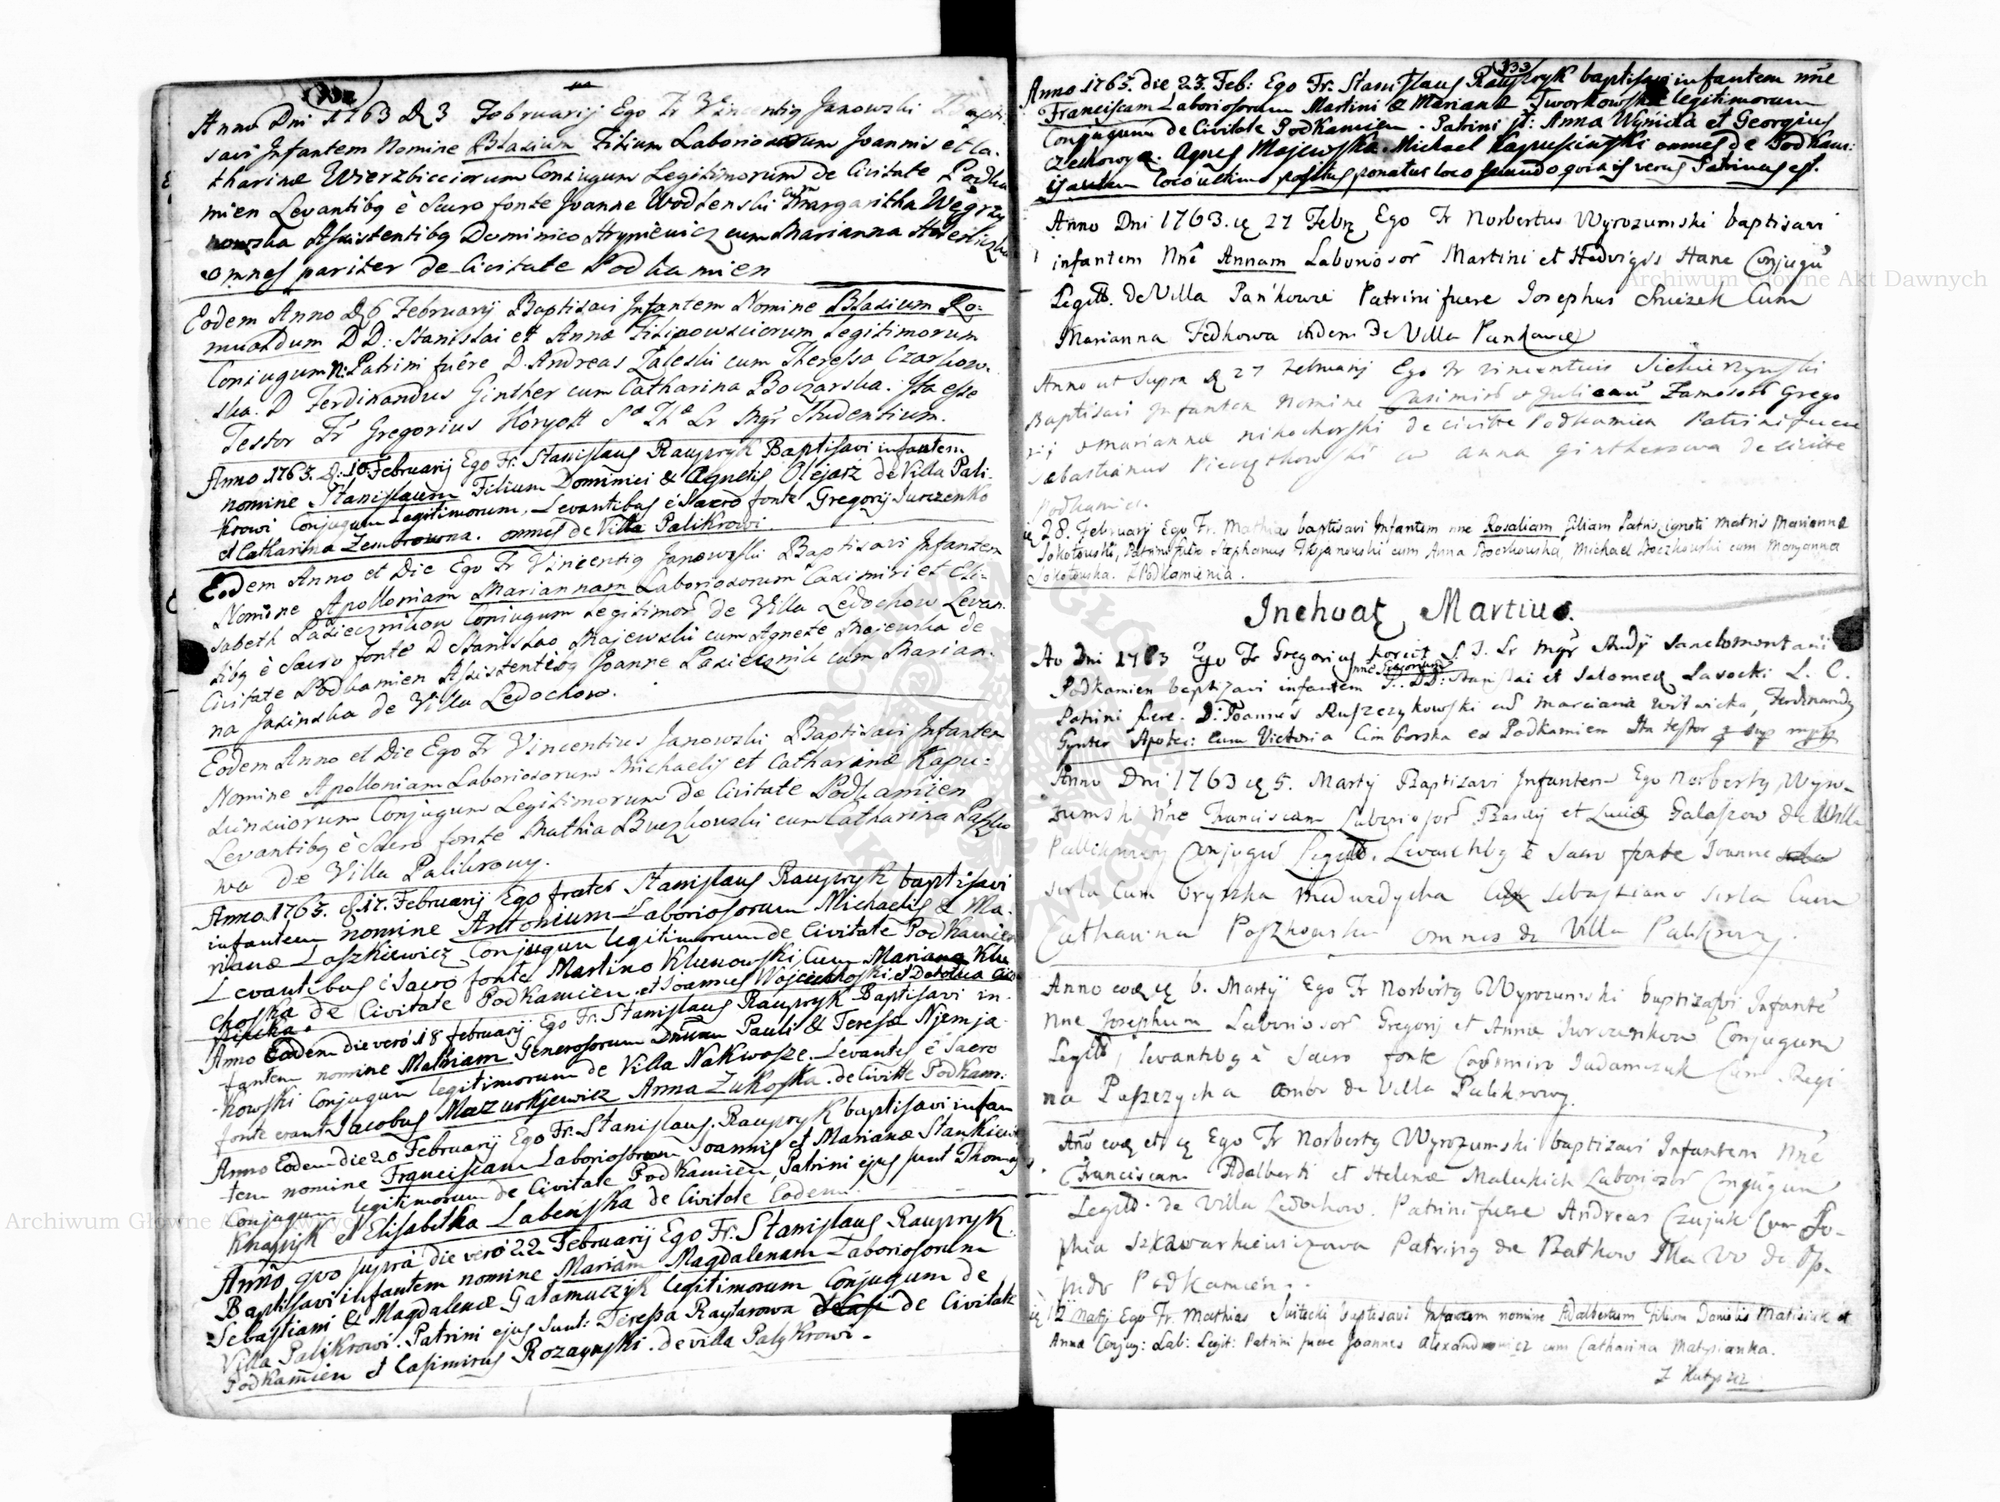 332
Anno Dni 1763 d 3 Februarij Ego Fr Vincentig Janowski Bapti-
savi Infantem Nomine Blasium Filium Laboriosorum Joannis et Ca-
tharinæ Wierzbicciorum Coniugum Legitimorum de Civitate Podka
mien Levantibg è Sacro fonte Joanne Wodzenski cum Margaritha Węgrzy
nowska Assistentibg Dominico Hrynieuicz cum Marianna
omnes pariter de Civitate Podkamien
Eodem Anno d 6 Februarij Baptisavi Infantem Nomine Blasium Ro-
mualdum DD: Stanislai et Annæ Filipowsciorum Legitimorum
Coniugum N: Patrini fuêre D. Andreas Zaleski cum Theressa Czarkow-
ska. D Ferdinandus Ginther cum Catharina Boczarska. Ita esse
Testor Fr Gregorius Horyott Sæ Thæ Lr Mgr Studentium.
Anno 1763. D: 10 Februarij Ego Fr. Stanislaus Raupryk Baptisavi infantem
nomine Stanislaum Filium Dominici & Agnetis Olejarz de Villa Pali-
krowi Conjugum Legitimorum, Levantibus è Sacro fonte Gregorij Jurczenko
et Catharina Zembrowna. omnes de Villa Palikrowi.
Eodem Anno et Die Ego Fr Vincentig Janowski Baptisavi Infantem
Nomine Apolloniam Mariannam Laboriosorum Casimiri et Eli-
sabeth Pasiecznikow Coniugum Legitimor de Villa Ledochow Levan-
tibg è Sacro fonte D Stanislao Majewski cum Agnete Majewska de
Civitate Podkamien Assistentibg Joanne Pasiecznik cum Marian-
na Jasinska de Villa Ledochow.
Eodem Anno et Die Ego Fr Vincentius Janowski Baptisavi Infantem
Nomine Apolloniam Laboriosorum Michaelis et Catharinæ Kapu-
scinsciorum Coniugum Legitimorum de Civitate Podkamien
Levantibg è Sacro fonte Mathia Buczkowski cum Catharina Paszko
wa de Villa Palikrowy.
Anno 1763. d. 17. Februarij Ego frater Stanislaus Raupryk baptisavi
infantem nomine Antonium Laboriosorum Michaelis & Ma-
rianæ Loszkiewicz Conjugum legitimorum de Civitate Podkamien
Levantibus è Sacro fonte Martino Klunowski Cum Mariana Klu
choska de Civitate Podkamien et Joannes Woyciechoski et Dorothea

Anno Eodem die verò 18 februarij Ego Fr. Stanislaus Raupryk Baptisavi in-
fantem nomine Mathiam Generosorum Dnum Pauli & Teresæ Njemja-
-kowski Conjugum legitimorum de Villa Nakwasze. Levantes è Sacro
fonte erant Jacobus Mazurkjewicz Anna Zukoska de Civitte Podkam:
Anno Eodem die 20 Februarij Ego Fr. Stanislaus Raupryk baptisavi infan
tem nomine Franciscam Laboriosorum Joannis et Marianæ Stankiewi
Conjugum legitimorum de Civitate Podkamien, Patrini ejus sunt Thomas
Knapiyk et Elisabetha Labenska de Civitate Eodem.
Anno quo suprà die verò 22 Februarij Ego Fr. Stanislaus Raupryk
Baptisavi infantem nomine Mariam Magdalenam Laboriosorum
Sebastiani & Magdalenæ Gatamuczyk legitimorum Conjugum de
Villa Palikrowi. Patrini ejus sunt: Teressa Raytarowa de Civitate
Podkamien et Casimirus Rozaynski. de villa Palykrowi-
333
Anno 1763. die 23. Feb: Ego Fr: Stanislaus Raupryk baptisavi infantem nne
Franciscam Laboriosorum Martini & Marianæ Tworkowska legitimorum
Conjugum de Civitate Podkamien. Patrini st: Anna Wynicka et Georgius
Agnes Majewska Michael Kapuscinski omnes de Podkam:
loco ultimo positus ponatur loco secundo quia is verus Patrinus est.
Anno Dni 1763. d 27 Febr Ego Fr Norbertus Wyrozumski baptisavi
infantem Nne Annam Laboriosor Martini et Hedvigis Hane Conjugu
Legitt. de Villa Pańkowie Patrini fuere Josephus Struzek Cum
Marianna Fedkowa itidem de Villa Pankowce
Anno ut Supra d 27 Februarij Ego Fr Vincentius Siekierzynski
Baptisavi Infantem Nomine Casimiru et Julianu Famosor Grego
rij et Mariannæ Nikochorski de civitte Podkamien Patrini fuere
Sebastianus cu Anna Gintherowa de civitte
Podkamien.
d 28. Februarij Ego Fr. Mathias baptisavi Infantem nne Rosaliam filiam Patris ignoti Matris Mariannæ
Sokołowski, Patrini fuere Stephanus Trojanowski cum Anna Boczkowska, Michael Boczkowski cum Maryanna
Sokołowska. Z Podkamienia.
Inchoat Martius.
Ao Dni 1763 Ego Fr Gregorius Horiot S. T. Lr Mgr Studij Sanctomontani
nne Gregorium
Podkamien baptizavi infantem DD: Stanislai et Salomeæ Lasocki L. C.
Patrini fuere. D: Joannes Ruszczykowski cu Marciana Witwicka, Ferdinandg
Gynter Apotec: cum Victoria Cim borska ex Podkamien Ita testor q sup mpp
Anno Dni 1763 d 5. Martij Baptizavi Infantem Ego Norbertg Wyro-
zumski Nne Franciscam Laboriosor Basilij et Luciæ Galaszow de Villa
Pallikrowy Conjugu Legitt. Levantibg è Sacro fonte Joanne
Serla Cum Oryszka Niedwiedycha Sebastiano Serla Cum
Catharina Paszkowska omnes de Villa Palikrowy.
Anno eod d 6. Martij Ego Fr Norbertg Wyrozumski baptizavi Infante
Nne Josephum Laboriosor Gregorij et Annæ Jurczenkow Conjugum
Legitt, levantibg è Sacro fonte Casimiro Judamczuk Cum Regi
na Paszczycha ambo de Villa Palikrowy.
Ano eod et d Ego Fr Norbertg Wyrozumski baptizavi Infantem Nne
Franciscam Adalberti et Helenæ Malukich Laboriosor Conjugum
Legitt. de Villa Ledochow. Patrini fuere Andreas Czujak Cum So-
phia Szkawarkiewiczowa Patring de Batkow Illa vo de Op-
pido Podkamien.
d 12 Martij Ego Fr. Mathias Switecki baptisavi Infantem nomine Adalbertum Filium Danielis Matisiak et
Anna Conjug: Lab: Legit: Patrini fuere Joannes Alexandrowicz cum Catharina Matysianka.
Z Hutysz
Archiwum Główne Akt Dawnych
Archiwum Główne Akt Dawnych